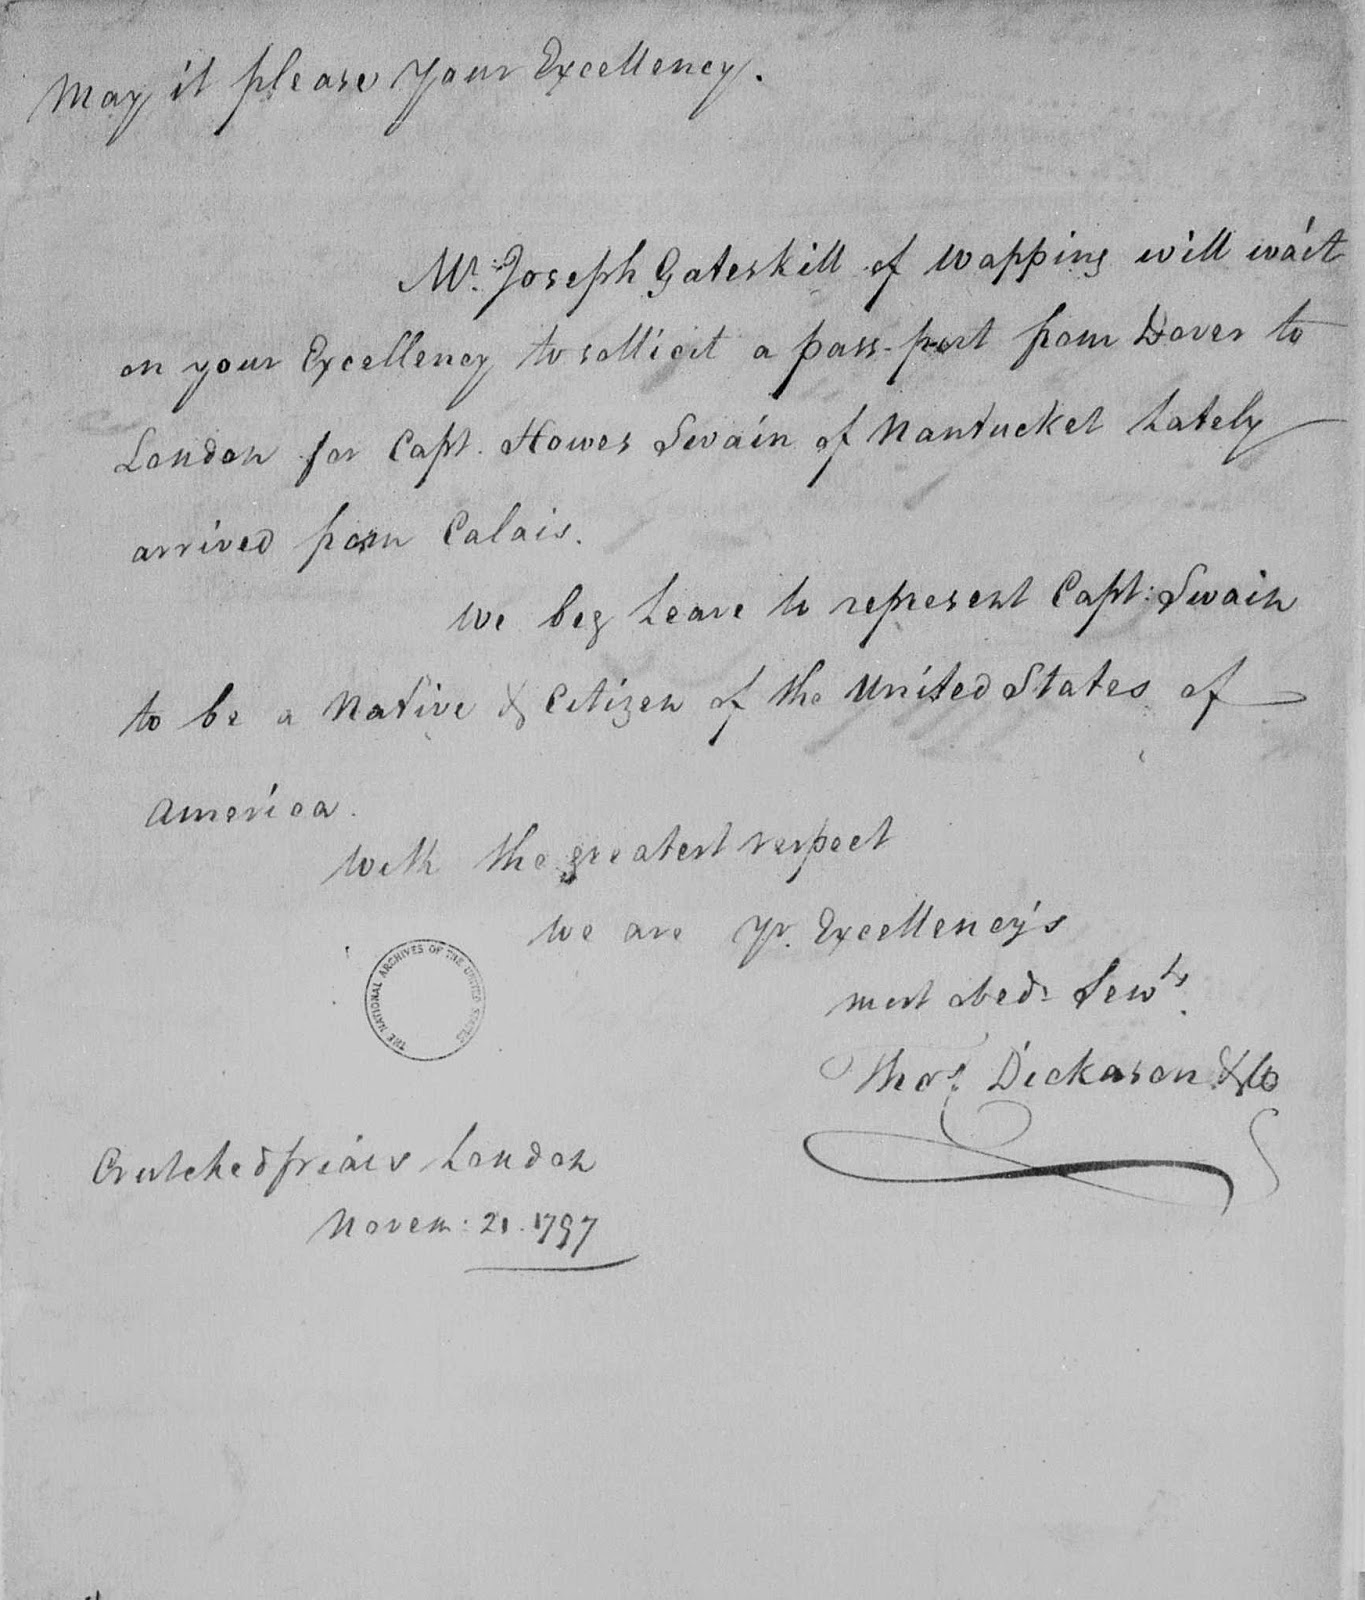 May it please Your Excellency.
Mr. Joseph Gateskill of Wapping will wait
on your Excellency to sollicit a pass-port from Dover to
London for Capt. Howes Swain of Nantucket Lately
arrived from Calais.
We beg Leave to represent Capt: Swain
to be a Native & Citizen of the United States of
America.
With the greatest respect
We are Yr. Excellency's
most obedt Servts.
Thos. Dickason & Co
THE NATIONAL ARCHIVES OF THE UNITED STATES
Crutchedfriars London
Novem: 21. 1797